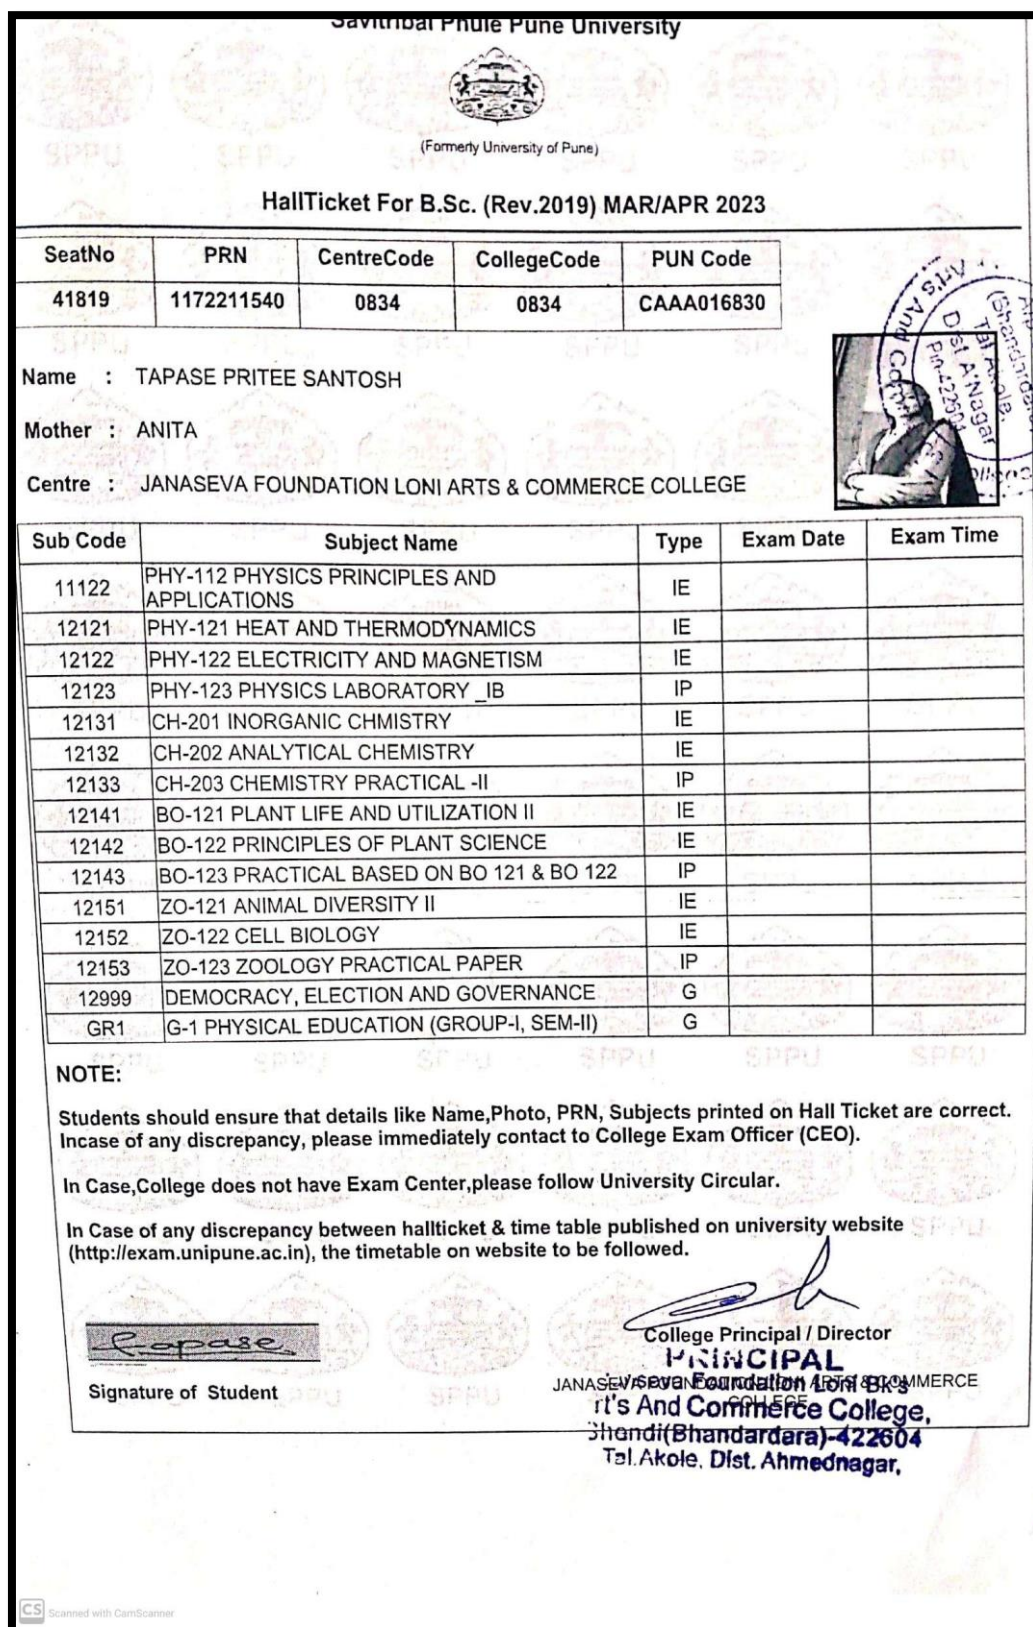 Savitribai Phule Pune University
(Formerly University of Pune)
HallTicket For B.Sc. (Rev.2019) MAR/APR 2023
SeatNo PRN CentreCode CollegeCode PUN Code
41819 1172211540 0834 0834 CAAA016830
Name : TAPASE PRITEE SANTOSH
Mother : ANITA
Centre : JANASEVA FOUNDATION LONI ARTS & COMMERCE COLLEGE
Art's And Com
(Bhandardara)
Tal. Akole,
Dist. A'Nagar
Pin-422604
Sub Code Subject Name Type Exam Date Exam Time
11122 PHY-112 PHYSICS PRINCIPLES AND
APPLICATIONS IE
12121 PHY-121 HEAT AND THERMODYNAMICS IE
12122 PHY-122 ELECTRICITY AND MAGNETISM IE
12123 PHY-123 PHYSICS LABORATORY _IB IP
12131 CH-201 INORGANIC CHMISTRY IE
12132 CH-202 ANALYTICAL CHEMISTRY IE
12133 CH-203 CHEMISTRY PRACTICAL -II IP
12141 BO-121 PLANT LIFE AND UTILIZATION II IE
12142 BO-122 PRINCIPLES OF PLANT SCIENCE IE
12143 BO-123 PRACTICAL BASED ON BO 121 & BO 122 IP
12151 ZO-121 ANIMAL DIVERSITY II IE
12152 ZO-122 CELL BIOLOGY IE
12153 ZO-123 ZOOLOGY PRACTICAL PAPER IP
12999 DEMOCRACY, ELECTION AND GOVERNANCE G
GR1 G-1 PHYSICAL EDUCATION (GROUP-I, SEM-II) G
SPPU SPPU SPPU SPPU SPPU SPPU
NOTE:
Students should ensure that details like Name,Photo, PRN, Subjects printed on Hall Ticket are correct.
Incase of any discrepancy, please immediately contact to College Exam Officer (CEO).
In Case,College does not have Exam Center,please follow University Circular.
In Case of any discrepancy between hallticket & time table published on university website
(http://exam.unipune.ac.in), the timetable on website to be followed.
Tapase
Signature of Student
College Principal / Director
PRINCIPAL
JANASEVA FOUNDATION LONI ARTS & COMMERCE
COLLEGE
Foundation Loni Bk's
rt's And Commerce College,
Shendi(Bhandardara)-422604
Tal.Akole. Dist. Ahmednagar,
CS Scanned with CamScanner